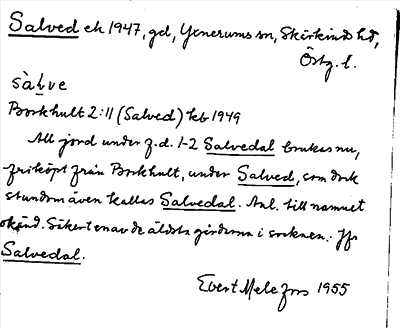 Salved ek 1947, gd, Yxnerums sn, Skärkinds hd,
Östg. l.
sàl̥ve
Borkhult 2:11 (Salved) kb 1949
All jord under f.d. 1-2 Salvedal brukas nu,
friköpt från Borkhult, under Salved, som dock
stundom även kallas Salvedal. Anl. till namnet
okänd. Säkert en av de äldsta gårdarna i socknen. Jfr
Salvedal.
Evert Melefors 1955